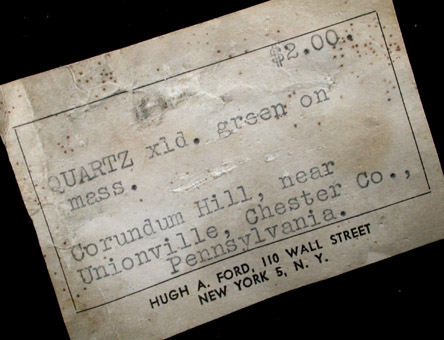 $2.00.
QUARTZ xld. green on
mass.
Corundum Hill, near
Unionville, Chester Co.,
Pennsylvania.
HUGH A. FORD, 110 WALL STREET
NEW YORK 5, N. Y.